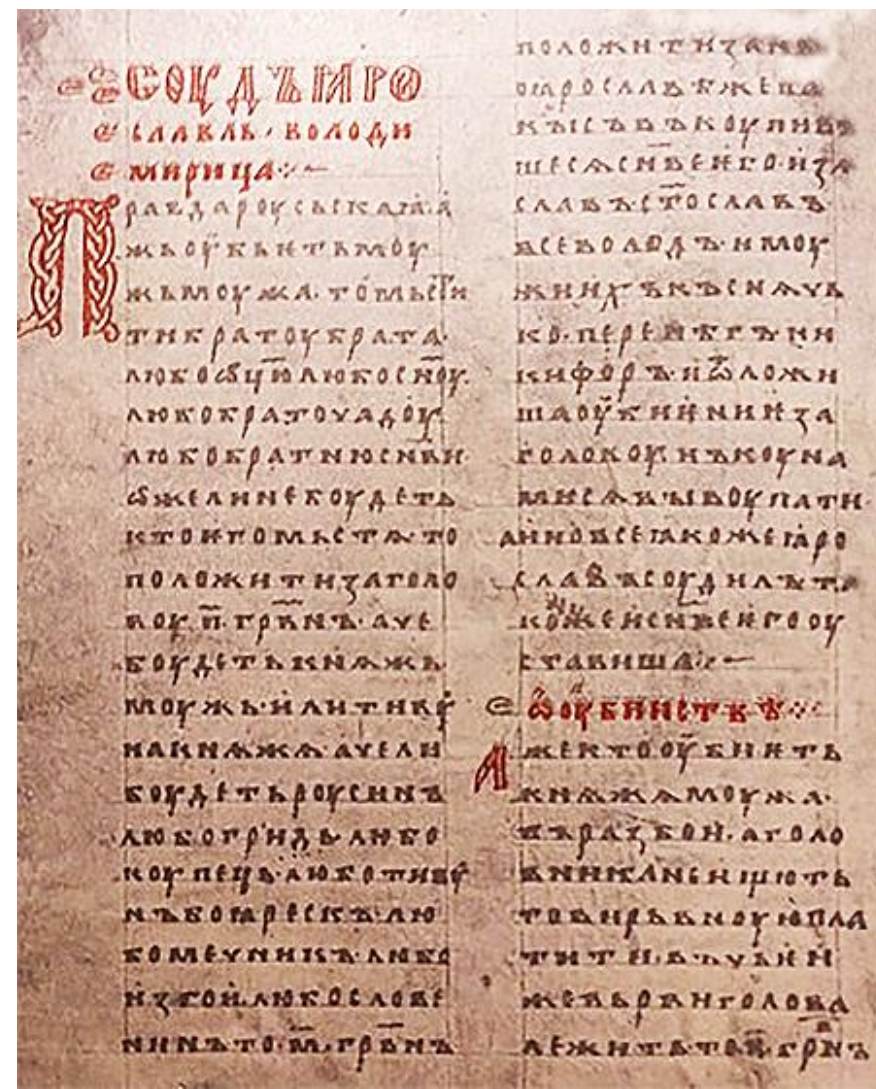 СОУДЪ ꙖРО
СЛАВЛЬ · ВОЛОДИ
МИРИЦА
ПРАВДА РОУСЬСКАꙖ · А
ЖЬ ОУБЬѤТЬ МОУ
ЖЬ МОУЖА · ТО МЬСТИ
ТИ БРАТОУ БРАТА ·
ЛЮБО Ѿ҃ЦЮ ЛЮБО СН҃ОУ ·
ЛЮБО БРАТОУЧАДОУ ·
ЛЮБО БРАТНЮ СН҃ВИ
ѠЖЕ ЛИ НЕ БОУДЕТЬ
КТО ѤГО МЬСТѦ · ТО
ПОЛОЖИТИ ЗА ГОЛО
ВОУ · П҃ · ГРВ҃НЪ · АЧЕ
БОУДЕТЬ КНѦЖЬ
МОУЖЬ · ИЛИ ТИВОУ
НА КНѦЖѦ · АЧЕ ЛИ
БОУДЕТЬ РОУСИНЪ
ЛЮБО ГРИДЬ · ЛЮБО
КОУПЕЦЬ · ЛЮБО ТИВОУ
НЪ БОꙖРЕСКЪ · ЛЮ
БО МЕЧНИКЪ · ЛЮБО
ИЗГОИ · ЛЮБО СЛОВЕ
НИНЪ ТО · М҃ · ГРВ҃НЪ
ПОЛОЖИТИ ЗА НЬ
ПО ꙖРОСЛАВѢ ЖЕ ПА
КЫ СЪВЪКОУПИВЪ
ШЕСѦ СН҃ВЕ ѤГО · ИЗѦ
СЛАВЪ · СТ҃ОСЛАВЪ ·
ВСЕВОЛОДЪ · И МОУ
ЖИ ИХЪ КЪСНѦЧЬ
КО · ПЕРЕНѢГЪ · НИ
КИФОРЪ · И ѾЛОЖИ
ША ОУБИѤНИѤ ЗА
ГОЛОВОУ · НЪ КОУНА
МИ СѦ ВЫКОУПАТИ ·
А ИНО ВСЕ ꙖКОЖЕ ꙖРО
СЛАВЪ СОУДИЛЪ ТА
КОЖЕ И СН҃ВЕ ѤГО ОУ
СТАВИША
Ѡ ОУБИИСТВѢ
АЖЕ КТО ОУБИѤТЬ
КНѦЖА МОУЖА ·
ВЪ РАЗБОИ · А ГОЛО
ВНИКА НЕ ИЩЮТЬ
ТО ВИРЬВНОУЮ ПЛА
ТИТИ · ВЪ ЧЬѤИ
ЖЕ ВЬРВИ ГОЛОВА
ЛЕЖИТЬ ТО П҃ · ГРВ҃НЪ